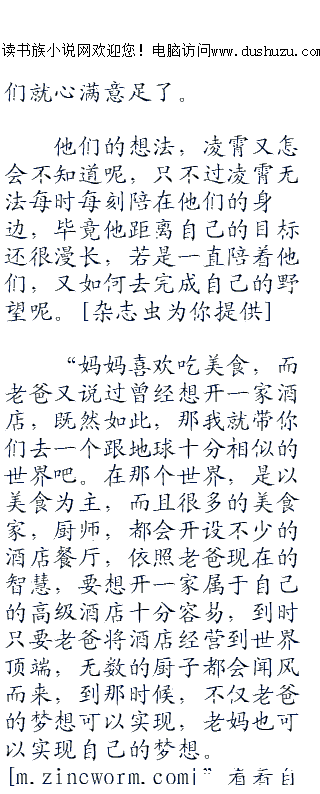 读书族小说网欢迎您！电脑访问www.dushuzu.com
们就心满意足了。
他们的想法，凌霄又怎
会不知道呢，只不过凌霄无
法每时每刻陪在他们的身
边，毕竟他距离自己的目标
还很漫长，若是一直陪着他
们，又如何去完成自己的野
望呢。[杂志虫为你提供]
“妈妈喜欢吃美食，而
老爸又说过曾经想开一家酒
店，既然如此，那我就带你
们去一个跟地球十分相似的
世界吧。在那个世界，是以
美食为主，而且很多的美食
家，厨师，都会开设不少的
酒店餐厅，依照老爸现在的
智慧，要想开一家属于自己
的高级酒店十分容易，到时
只要老爸将酒店经营到世界
顶端，无数的厨子都会闻风
而来，到那时候，不仅老爸
的梦想可以实现，老妈也可
以实现自己的梦想。
[m.zincworm.com]”看着自